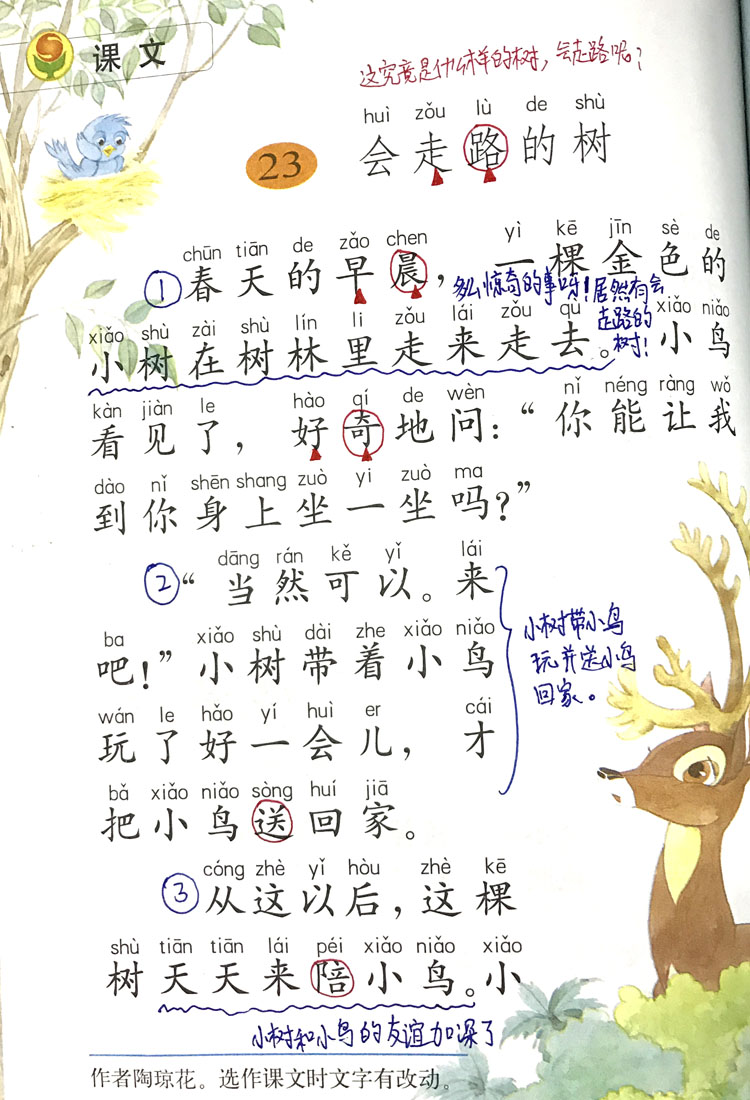 课文
这究竟是什么样的树，会走路呢？
huì zǒu lù de shù
23 会走路的树
chūn tiān de zǎo chen yì kē jīn sè de
①春天的早晨，一棵金色的
多么惊奇的事呀！居然有会
走路的
树！
xiǎo shù zài shù lín li zǒu lái zǒu qù xiǎo niǎo
小树在树林里走来走去。小鸟
kàn jiàn le hào qí de wèn nǐ néng ràng wǒ
看见了，好奇地问：“你能让我
dào nǐ shēn shang zuò yi zuò ma
到你身上坐一坐吗？”
dāng rán kě yǐ lái
②“当然可以。来
ba xiǎo shù dài zhe xiǎo niǎo
吧！”小树带着小鸟
小树带小鸟
玩并送小鸟
回家。
wán le hǎo yí huì er cái
玩了好一会儿，才
bǎ xiǎo niǎo sòng huí jiā
把小鸟送回家。
cóng zhè yǐ hòu zhè kē
③从这以后，这棵
shù tiān tiān lái péi xiǎo niǎo xiǎo
树天天来陪小鸟。小
小树和小鸟的友谊加深了
作者陶琼花。选作课文时文字有改动。